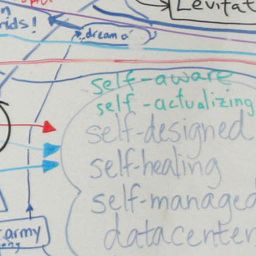 Levitat
rids!
dream o
self-aware
self-actualizing
self-designed
self-healing
self-managed
datacenter
army